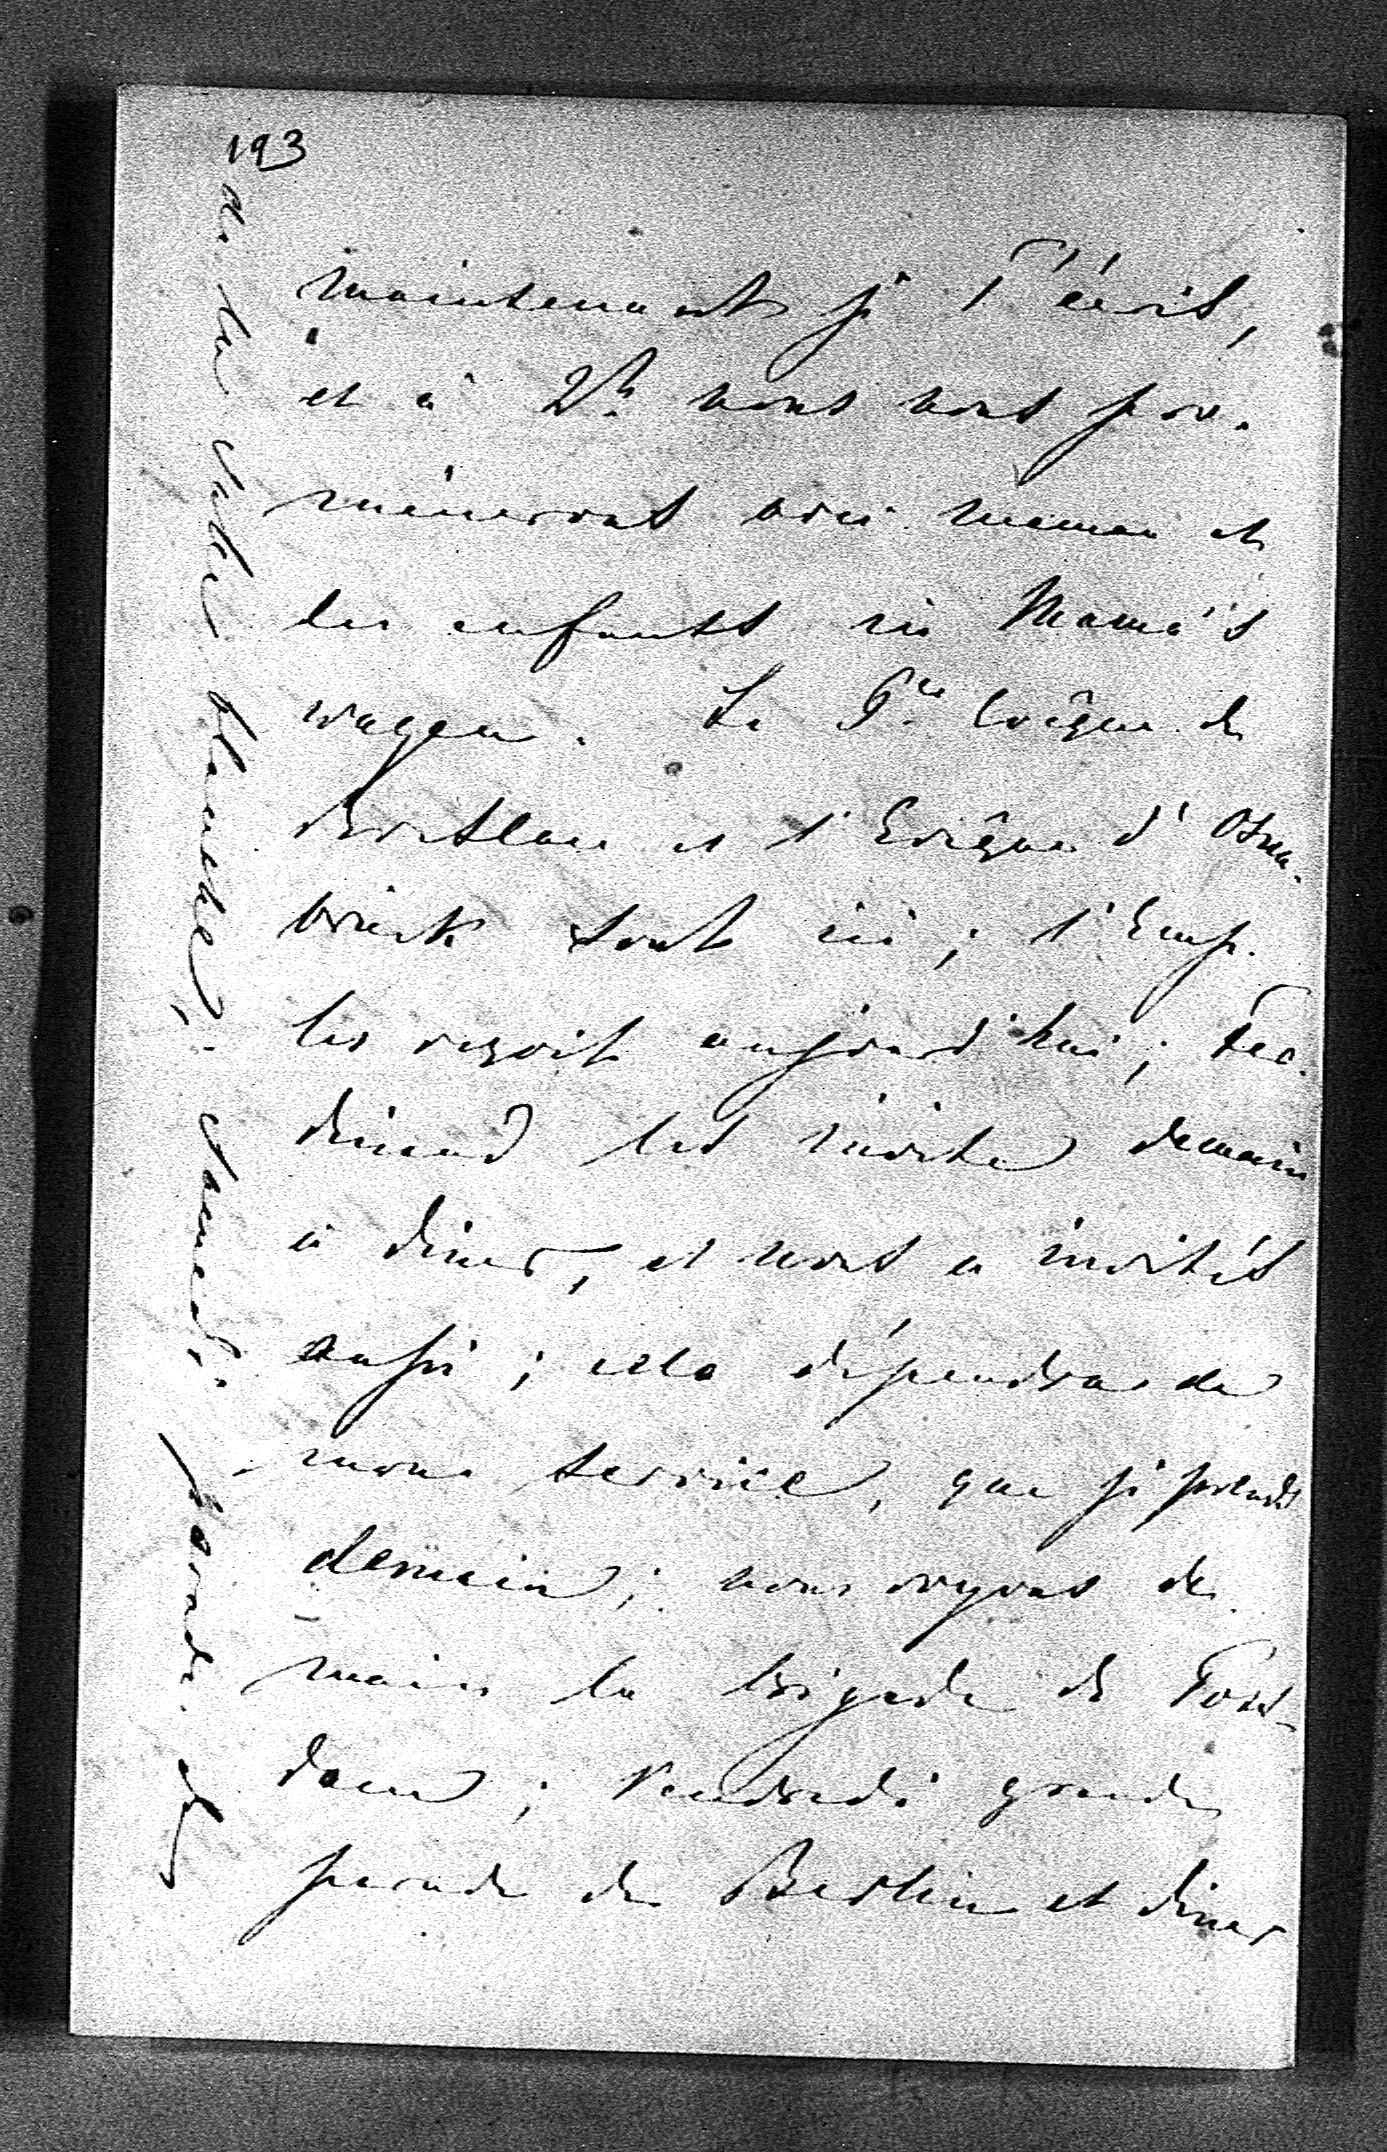 193
maintenant je T'écris,
et à 2h nous nous pro-
mènerons avec maman et
les enfants in Mama's
wagen. Le Pce Evêque de
Breslau et l'Evêque d'Osna-
brück sont ici; l'Emp.
les reçoit aujourd'hui; Fer-
dinand les invite demain
à dîner, et nous a invités
aussi; cela dépendra de
mon service, que je prends
demain; nous voyons de-
main la brigade de Pots-
dam; Vendredi grande
parade de Berlin et dîner
de la salle blanche; Samedi parade de